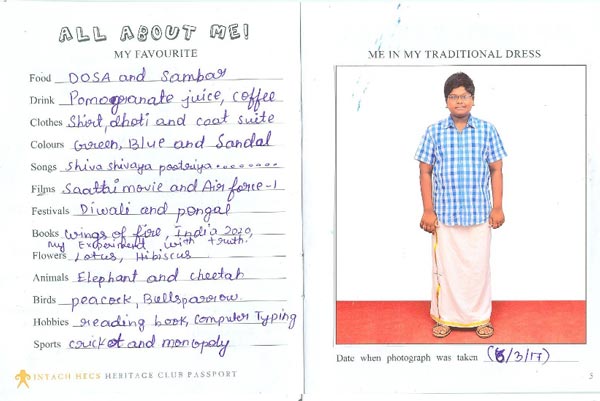 ALL ABOUT ME!
MY FAVOURITE
Food DOSA and Sambar
Drink Pomogranate juice, coffee
Clothes Shirt, dhoti and coat suite
Colours Green, Blue and Sandal
Songs Shiva shivaya pootriya........
Films Saattai movie and Air force-1
Festivals Diwali and pongal
Books wings of fire, India 2020,
my Experiment with truth.
Flowers Lotus, Hibiscus
Animals Elephant and cheetah
Birds peacock, Bullsparrow.
Hobbies reading book, Computer Typing
Sports cricket and monopoly
INTACH HECS HERITAGE CLUB PASSPORT
ME IN MY TRADITIONAL DRESS
Date when photograph was taken (5/3/17)
3